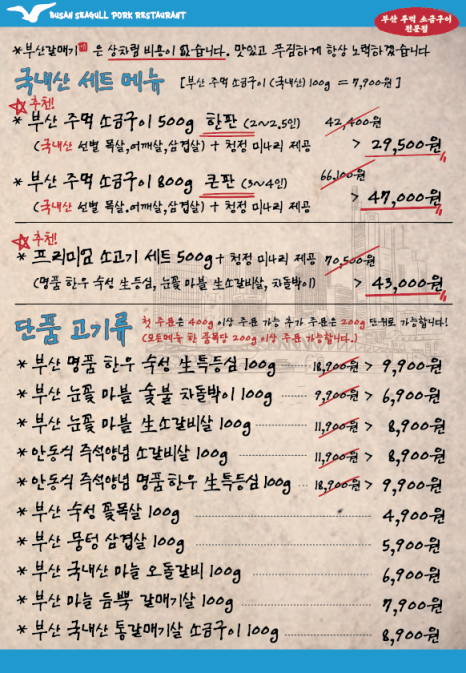 BUSAN SEAGULL PORK RESTAURANT
부산 주먹 소금구이
전문점
*부산갈매기 은 상차림 비용이 없습니다. 맛있고 푸짐하게 항상 노력하겠습니다
국내산 세트 메뉴 [부산 주먹 소금구이 (국내산) 100g = 7,900원]
추천!
* 부산 주먹 소금구이 500g 한판 (2~2.5인) 42,400원
(국내산 선별 목살,어깨살,삼겹살) + 청정 미나리 제공 > 29,500원
* 부산 주먹 소금구이 800g 큰판 (3~4인) 66,100원
(국내산 선별 목살,어깨살,삼겹살) + 청정 미나리 제공 > 47,000원
추천!
* 프리미엄 소고기 세트 500g + 청정 미나리 제공 70,500원
(명품 한우 숙성 生등심, 눈꽃 마블 生소갈비살, 차돌박이) > 43,000원
단품 고기류 첫 주문은 400g 이상 주문 가능 추가 주문은 200g 단위로 가능합니다!
(모든메뉴 한 품목당 200g 이상 주문 가능합니다.)
* 부산 명품 한우 숙성 生특등심 100g 18,900원 > 9,900원
* 부산 눈꽃 마블 숯불 차돌박이 100g 9,900원 > 6,900원
* 부산 눈꽃 마블 生소갈비살 100g 11,900원 > 8,900원
* 안동식 즉석양념 소갈비살 100g 11,900원 > 8,900원
* 안동식 즉석양념 명품 한우 生특등심 100g 18,900원 > 9,900원
* 부산 숙성 꽃목살 100g 4,900원
* 부산 뭉텅 삼겹살 100g 5,900원
* 부산 국내산 마늘 오돌갈비 100g 6,900원
* 부산 마늘 듬뿍 갈매기살 100g 7,900원
* 부산 국내산 통갈매기살 소금구이 100g 8,900원